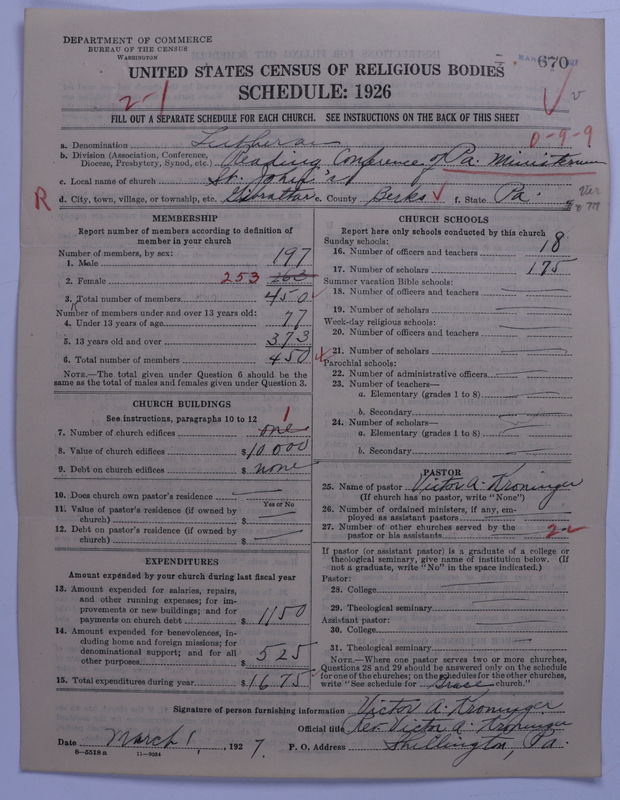 DEPARTMENT OF COMMERCE
BUREAU OF THE CENSUS
WASHINGTON
670
UNITED STATES CENSUS OF RELIGIOUS BODIES
SCHEDULE: 1926
2-1
v
FILL OUT A SEPARATE SCHEDULE FOR EACH CHURCH. SEE INSTRUCTIONS ON THE BACK OF THIS SHEET
0-9-9
a. Denomination Lutheran
b. Division (Association, Conference, Diocese, Presbytery, Synod, etc.) Reading Conference of Pa. Ministerium
c. Local name of church St. John's
R d. City, town, village, or township, etc. Gibraltar e. County Berks f. State Pa.
MEMBERSHIP
Report number of members according to definition of
member in your church
Number of members, by sex:
1. Male 197
2. Female 253 263
3. Total number of members 450
Number of members under and over 13 years old:
4. Under 13 years of age 77
5. 13 years old and over 373
6. Total number of members 450
NOTE.—The total given under Question 6 should be
the same as the total of males and females given under Question 3.
CHURCH BUILDINGS
See instructions, paragraphs 10 to 12
7. Number of church edifices one 1
8. Value of church edifices $10,000
9. Debt on church edifices $ none
10. Does church own pastor's residence
Yes or No
11. Value of pastor's residence (if owned by
church) $
12. Debt on pastor's residence (if owned by
church) $
EXPENDITURES
Amount expended by your church during last fiscal year
13. Amount expended for salaries, repairs,
and other running expenses; for im-
provements or new buildings; and for
payments on church debt $1150
14. Amount expended for benevolences, in-
cluding home and foreign missions; for
denominational support; and for all
other purposes $525
15. Total expenditures during year $1675
CHURCH SCHOOLS
Report here only schools conducted by this church
Sunday schools:
16. Number of officers and teachers 18
17. Number of scholars 175
Summer vacation Bible schools:
18. Number of officers and teachers
19. Number of scholars
Week-day religious schools:
20. Number of officers and teachers
21. Number of scholars
Parochial schools:
22. Number of administrative officers
23. Number of teachers—
a. Elementary (grades 1 to 8)
b. Secondary
24. Number of scholars—
a. Elementary (grades 1 to 8)
b. Secondary
PASTOR
25. Name of pastor Victor A. Kroninger
(If church has no pastor, write "None")
26. Number of ordained ministers, if any, em-
ployed as assistant pastors
27. Number of other churches served by the
pastor or his assistants 2
If pastor (or assistant pastor) is a graduate of a college or
theological seminary, give name of institution below. (If
not a graduate, write "No" in the space indicated.)
Pastor:
28. College
29. Theological seminary
Assistant pastor:
30. College
31. Theological seminary
NOTE.—Where one pastor serves two or more churches,
Questions 28 and 29 should be answered only on the schedule
for one of the churches; on the schedules for the other churches,
write "See schedule for Grace church."
Signature of person furnishing information Victor A. Kroninger
Official title Rev. Victor A. Kroninger
Date March 1, 1927. P. O. Address Shillington, Pa.
8—5518 a 11—9034